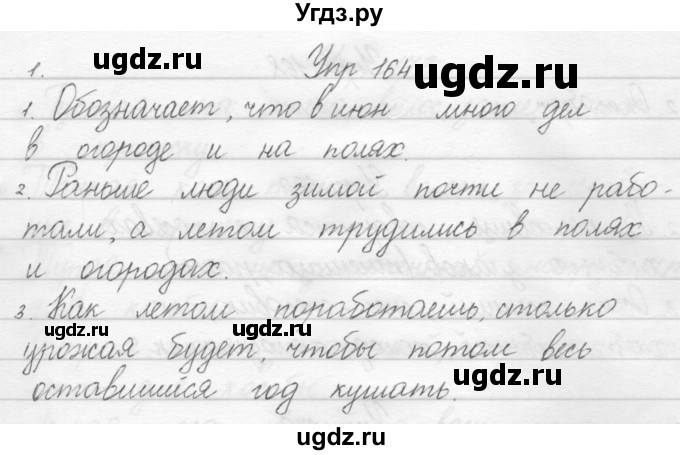 Угдз.ру
ugdz.ru ugdz.ru
1. Упр 164
1. Обозначает, что в июн много дел
в огороде и на полях.
ugdz.ru ugdz.ru
2. Раньше люди зимой почти не рабо-
тали, а летом трудились в полях
и огородах.
ugdz.ru ugdz.ru
3. Как летом поработаешь, столько
урожая будет, чтобы потом весь
оставшийся год кушать.
ugdz.ru ugdz.ru
ugdz.ru